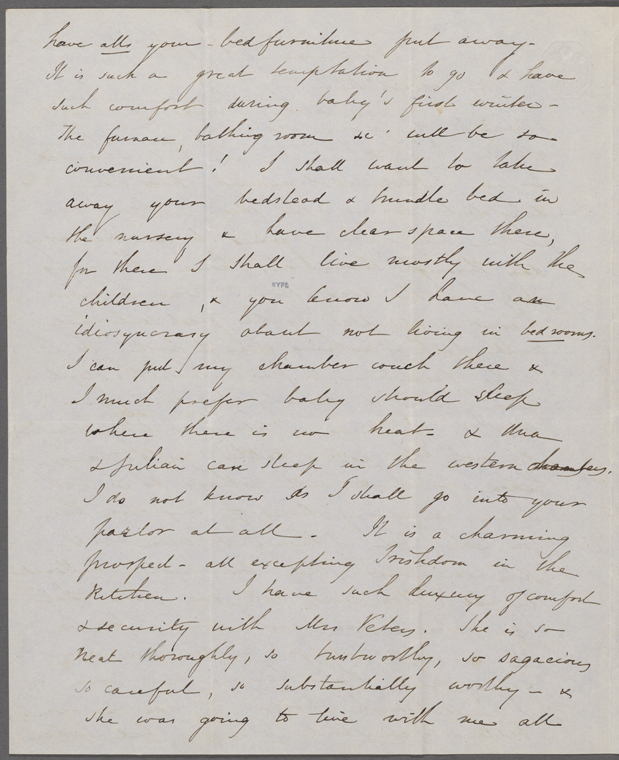 have all your bedfurniture put away -
It is such a great temptation to go & have
such comfort during baby's first winter -
The furnace, bathing room &c will be so
convenient! I shall want to take
away your bedstead & trundle bed in
the nursery & have clear space there,
for there I shall live mostly with the
NYPL
children, & you know I have an
idiosyncrasy about not living in bedrooms.
I can put my chamber couch there &
I much prefer baby should sleep
where there is no heat - & Una
& Julian can sleep in the western chambers.
I do not know as I shall go into your
parlor at all - It is a charming
prospect - all excepting Irishdom in the
kitchen. I have such luxury of comfort
& security with Mrs Peters. She is so
neat thoroughly, so trustworthy, so sagacious
so careful, so substantially worthy - &
she was going to live with me all